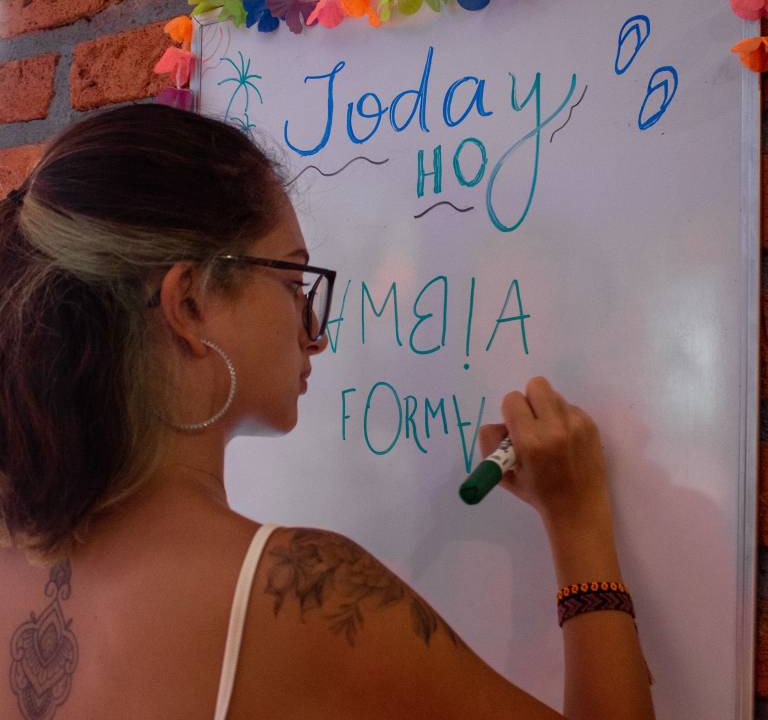 Today
HOy
AMBIA
FORMA